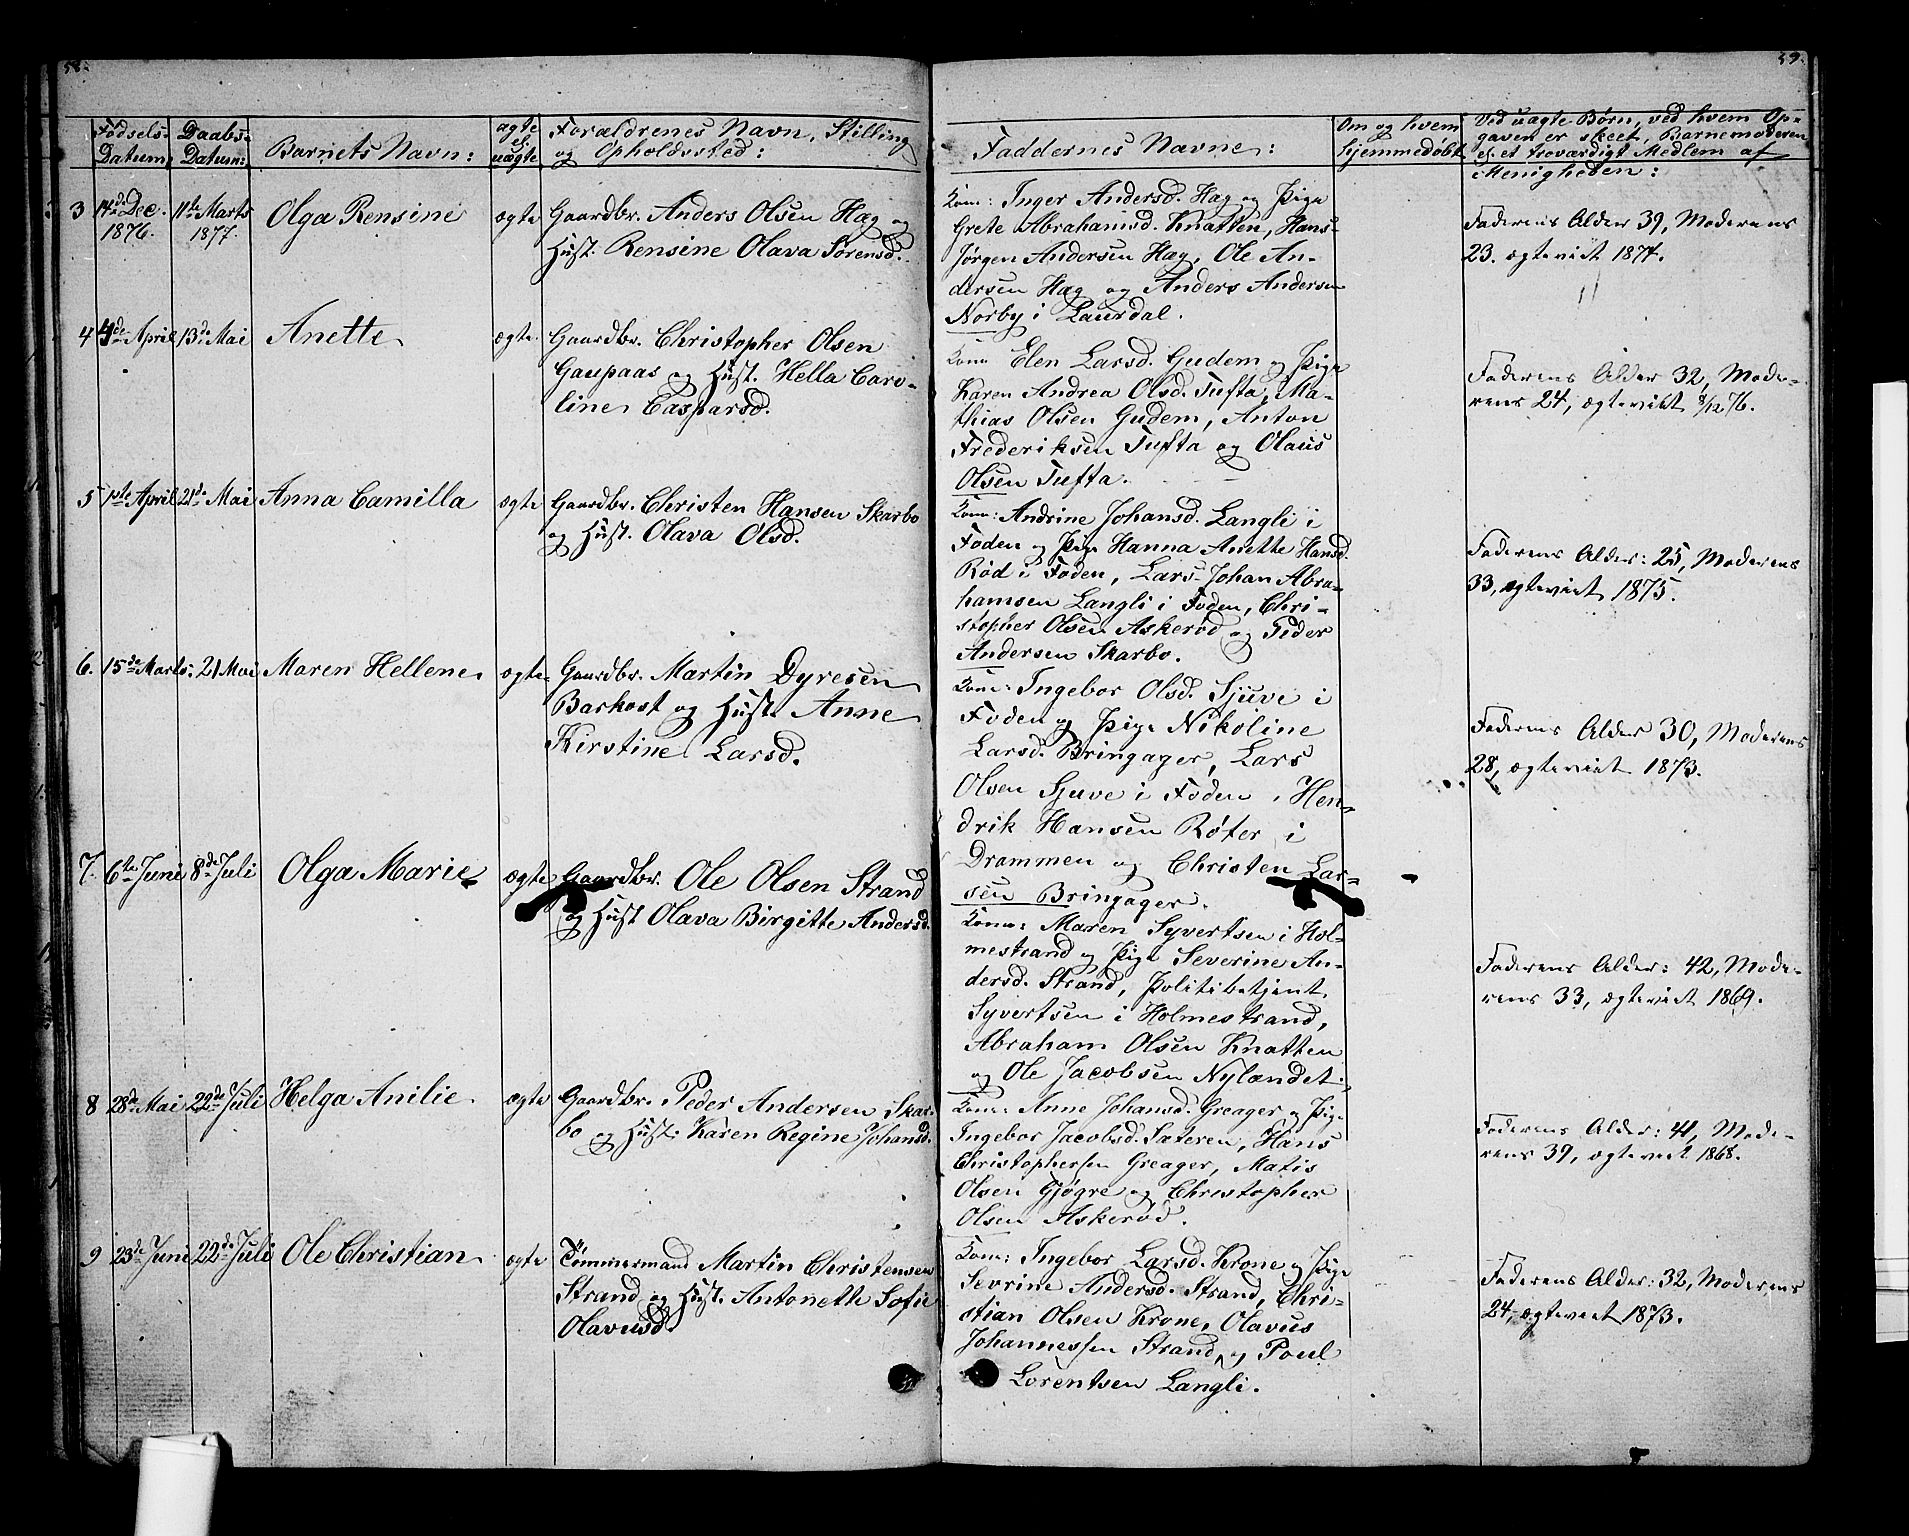 58.
Fødsels-
Datum;
Daabs-
Datum:
Barnets Navn:
ægte
el.
uægte
Forældrenes Navn, Stilling
og Opholdssted:
3
14de Dec.
1876.
11te Marts
1877.
Olga Rensine
ægte
Gaardbr. Anders Olsen Hæg og
Hust. Rensine Olava Sørensd.
4
4de April
13de Mai
Anette
ægte.
Gaardbr. Christopher Olsen
Gaupaas og Hust. Hella Caro-
line Casparsd.
5
1ste April
21de Mai
Anna Camilla
ægte
Gaardbr. Christen Hansen Skarbo
og Hust. Olava Olsd.
6.
15de Marts:
21 Mai
Maren Hellene
ægte
Gaardbr. Martin Dyresen
Barkost og Hust. Anne
Kirstine Larsd.
7.
6te Juni
8de Juli
Olga Marie
ægte
Gaardbr. Ole Olsen Strand
og Hust Olava Birgitte Andersd.
8
28de Mai
22de Juli
Helga Anilie
ægte
Gaardbr. Peder Andersen Skar-
bo og Hust. Karen Regine Johansd.
9
23de Juni
22de Juli
Ole Christian
ægte
Tömmermand Martin Christensen
Strand og Hust. Antoneth Sofie
Olavusd.
59.
Faddernes Navne:
Om og hvem
hjemmedøbt
Ved uægte Børn, ved hvem Op-
gaven er skeet, Barnemoderen
el. et troværdigt Medlem af
Menigheden:
Kone: Inger Andersd. Hag og Pige
Grete Abrahamsd. Knatten, Hans-
Jørgen Andersen Hæg, Ole An-
dersen Hæg og Anders Andersen
Norby i Laurdal.
Faderens Alder 39, Moderens
23. ægteviet 1874.
Kone Elen Larsd. Gudem og Pige
Karen Andrea Olsd. Tufta, Ma-
thias Olsen Gudem, Anton
Frederiksen Tufta og Olaus
Olsen Tufta.
Faderens Alder 32, Mode-
rens 24, ægteviet 8/12 76.
Kone: Andrine Johansd. Langli i
Foden og Pige Hanna Anette Hansd.
Rød i Foden, Lars Johan Abra-
hamsen Langli i Foden, Chri-
stopher Olsen Askerød og Peder
Andersen Skarbo.
Faderens Alder: 25, Moderens
33, ægteviet 1875.
Kone: Ingebor Olsd. Sjuve i
Foden og Pige Nikoline
Larsd. Bringager, Lars
Olsen Sjuve i Foden, Hen-
drik Hansen Røter i
Drammen og Christen Lar-
sen Bringager.
Faderens Alder 30, Moderens
28, ægteviet 1873.
Kone: Maren Syvertsen i Hol-
mestrand og Pige Severine An-
dersd. Strand, Politibetjent
Syvertsen i Holmestrand,
Abraham Olsen Knatten
og Ole Jacobsen Nylandet.
Faderens Alder: 42, Mode-
rens 33, ægteviet 1869.
Kone: Anne Johansd. Greager og Pige
Ingebor Jacobsd. Sateren, Hans
Christophersen Greager, Matis
Olsen Gjøgre og Christopher
Olsen Askerød.
Faderens Alder: 41, Mode-
rens 39, ægteviet 1868.
Kone: Ingebor Larsd. Krone og Pige
Sevrine Andersd. Strand, Chri-
stian Olsen Krone, Olavus
Johannessen Strand, og Poul
Lorentsen Langli.
Faderens Alder: 32, Moderens
24, ægteviet 1873.